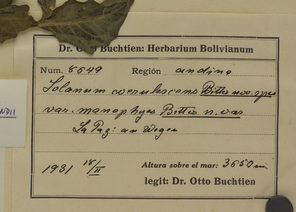 Dr. Otto Buchtien: Herbarium Bolivianum
Num. 8649 Región andina
Solanum coerulescens Bitter nov. spec.
var. monophyes Bitter n. var.
La Paz: an Wegen
1931 18/II Altura sobre el mar: 3650 m
legit: Dr. Otto Buchtien